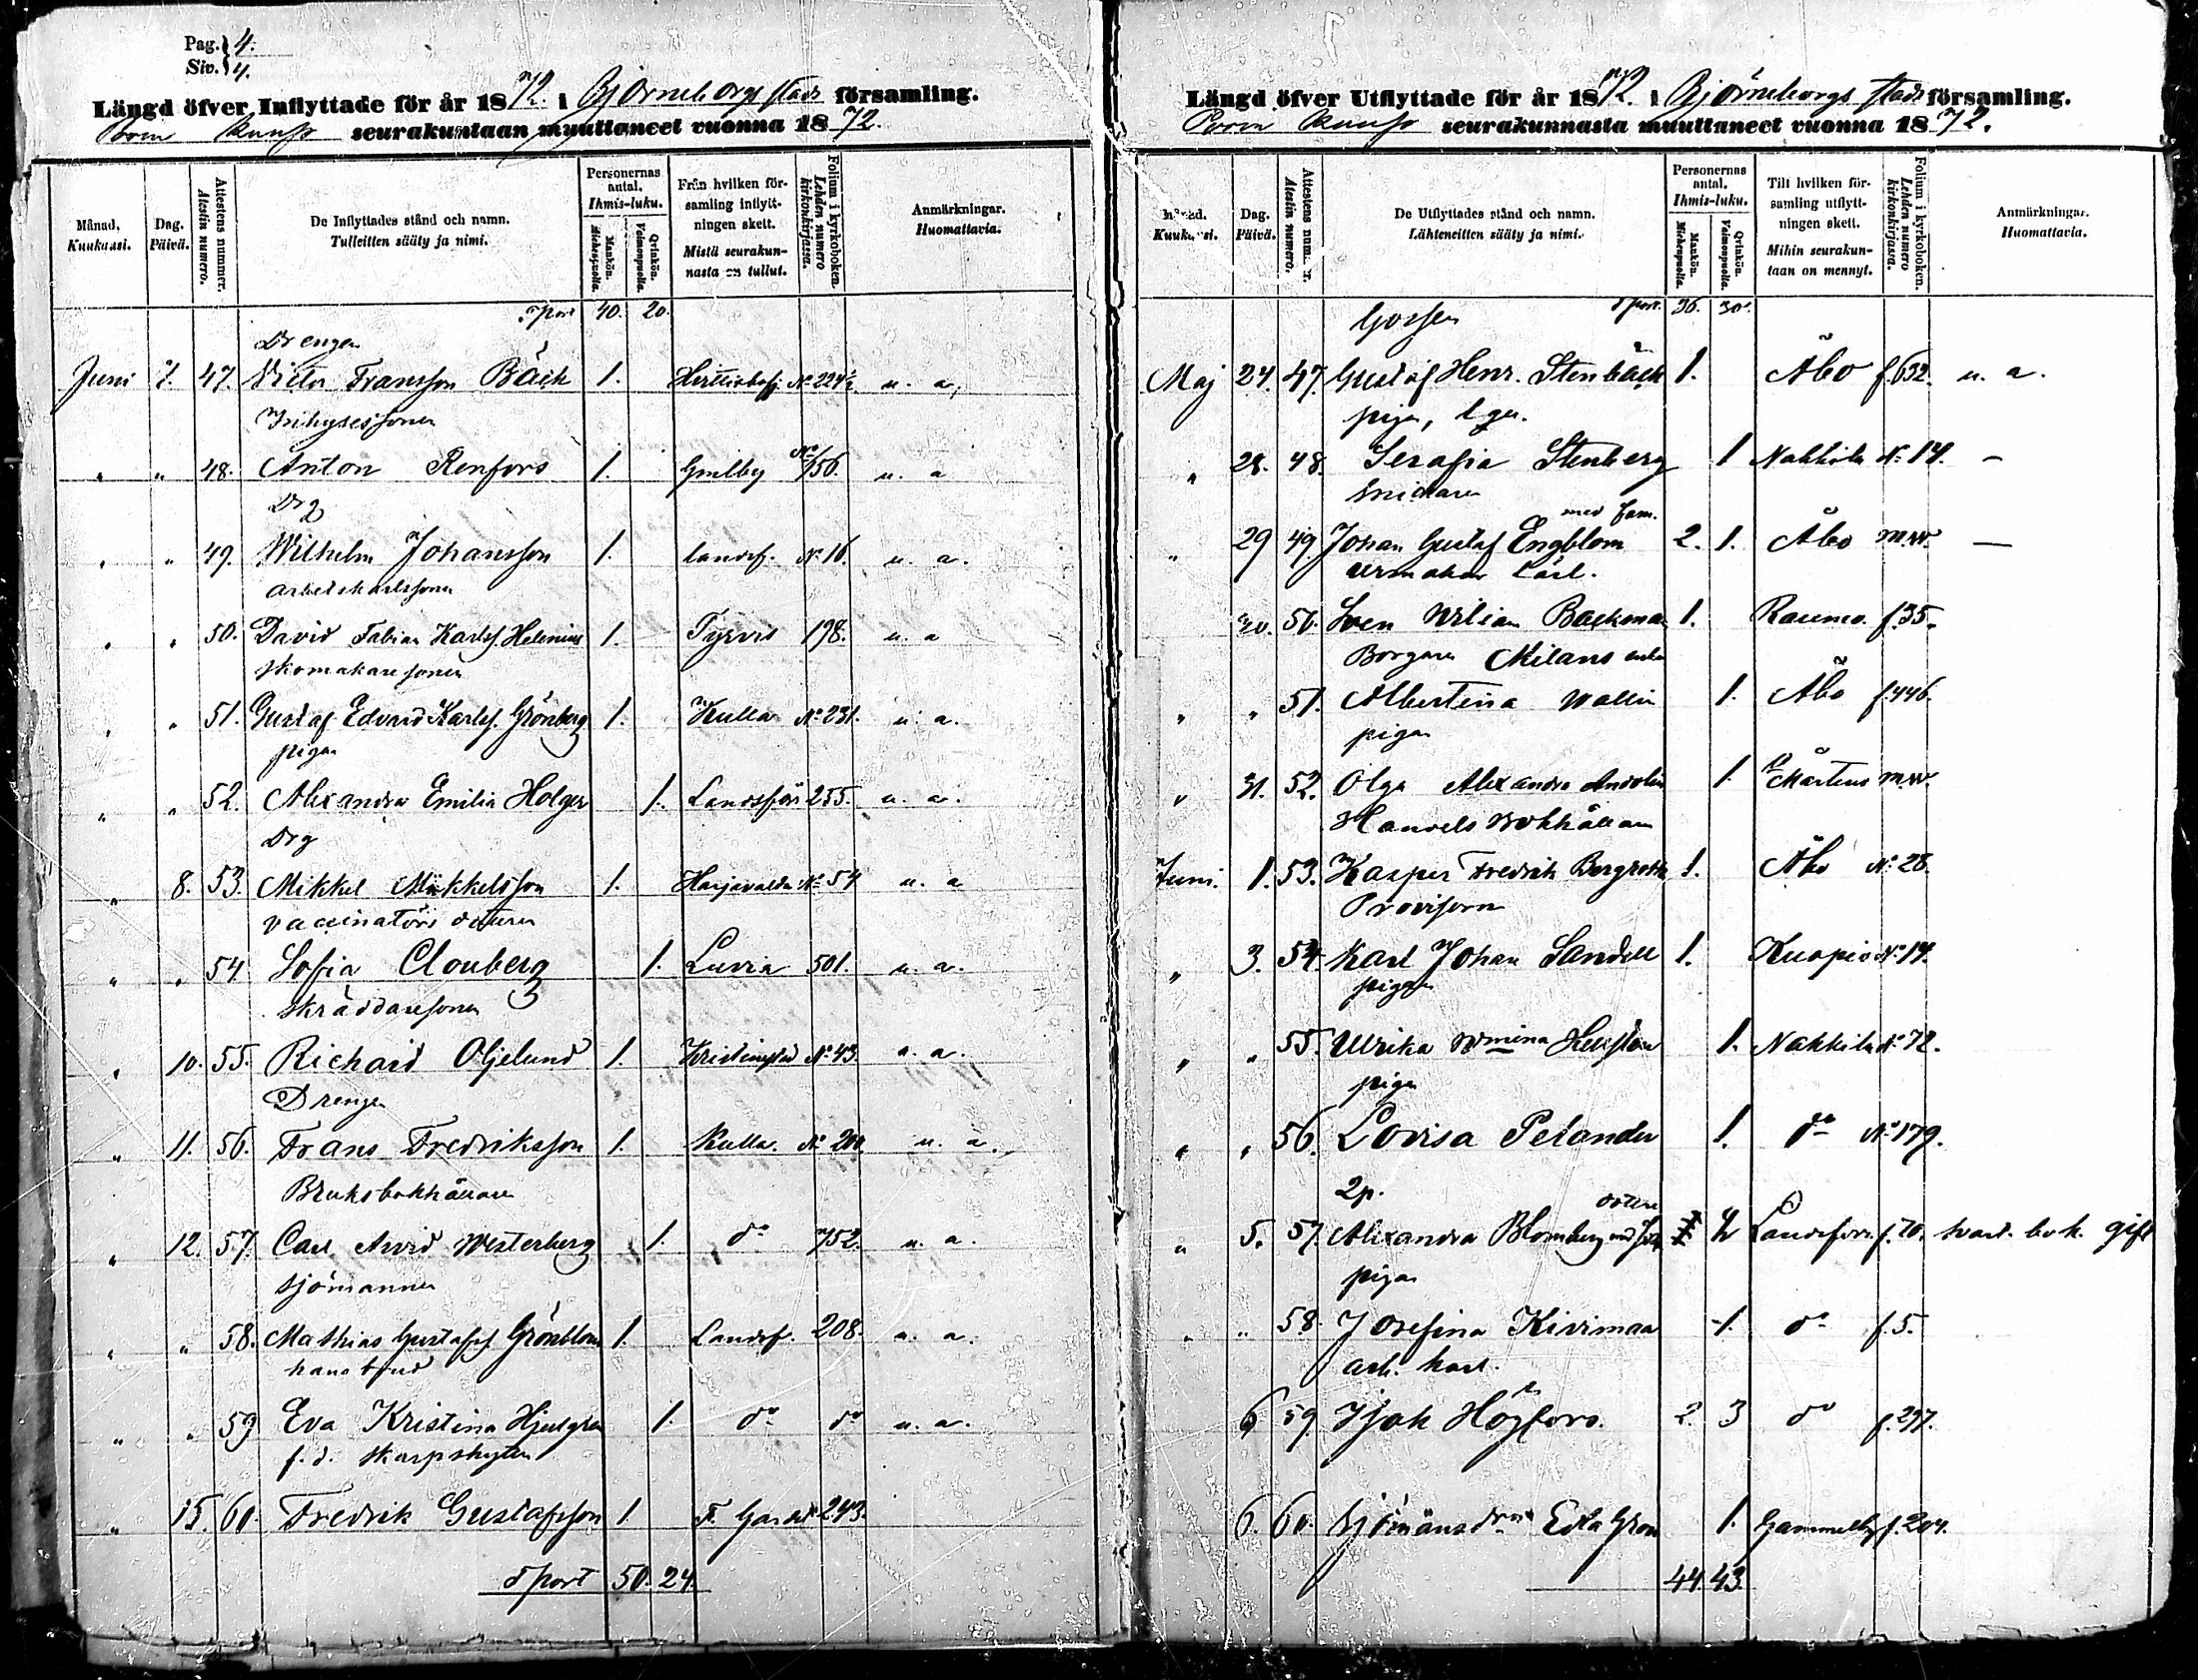 Pag. 4.
Siv. 4.
Längd öfver Inflyttade för år 1872. i Björneborgs stads församling.
Porin kaup. seurakuntaan muuttaneet vuonna 1872.
Månad. Kuukausi.
Dag. Päivä.
Attestens nummer. Atestin numero.
De Inflyttades stånd och namn. Tulleitten sääty ja nimi.
Personernas antal. Ihmis-luku.
Mankön. Miehenpuolia.
Qvinkön. Vaimonpuolia.
Från hvilken församling inflyttningen skett. Mistä seurakunnasta on tullut.
Folium i kyrkoboken. Lehden numero kirkonkirjassa.
Anmärkningar. Huomattavia.
Tport 40. 20.
Drengen
Juni 7. 47. Victor Fransson Bäck 1. N:o 224½ u. a.
Inhysessonen
" " 48. Anton Renfors 1. N:o 156. u. a
Drg
" " 49. Wilhelm Johansson 1. landsf. N:o 16. u. a.
arbetskarlssonen
" " 50. David Fabian Karlss. Helenius 1. Tyrvis 198. u. a
skomakaresonen
" " 51. Gustaf Edvard Karlss. Grönberg 1. Kulla N:o 231. u. a.
pigan
" " 52. Alexandra Emilia Holger 1. Landsför. 255. u. a.
Drg
" 8. 53. Mikkel Mikkelsson 1. Harjavalda N:o 54 u. a
vaccinatörs dottren
" " 54 Sofia Clouberg 1. Luvia 501. u. a.
skräddaresonen
" 10. 55. Richard Oljelund 1. Kristinestad N:o 43. u. a.
Drengen
" 11. 56. Frans Fredriksson 1. Kulla. N:o 200. u. a.
Bruksbokhållaren
" 12. 57. Carl Arvid Westerberg 1. d:o 752. u. a.
sjömannen
" " 58. Mathias Gustafss. Grönblom 1. Landsf. 208. u. a.
hans brud
" " 59 Eva Kristina 1. d:o d:o u. a.
f. d. skarpskytten
" 15. 60. Fredrik Gustafsson 1 F. Gard. 243.
Tport 50. 24.
Längd öfver Utflyttade för år 1872. i Björneborgs stads församling.
Porin kaup. seurakunnasta muuttaneet vuonna 1872.
Månad. Kuukausi.
Dag. Päivä.
Attestens nummer. Atestin numero.
De Utflyttades stånd och namn. Lähteneitten sääty ja nimi.
Personernas antal. Ihmis-luku.
Mankön. Miehenpuolia.
Qvinkön. Vaimonpuolia.
Till hvilken församling utflyttningen skett. Mihin seurakuntaan on mennyt.
Folium i kyrkoboken. Lehden numero kirkonkirjassa.
Anmärkningar. Huomattavia.
Gossen Tport. 36. 30.
Maj 24. 47. Gustaf Henr. Stenbäck 1. Åbo f. 632. u. a.
pigan,
" 28. 48. Serafia Stenberg 1 Nakkila N:o 14. —
Snickaren med fam.
" 29 49 Johan Gustaf Engblom 2. 1. Åbo m.w. —
urmakar lärl.
" 30. 50. Sven Wilian Backman 1. Raumo. f. 35.
Borgaren Milans enka
" " 51. Albertina Wallin 1. Åbo f. 446.
pigan
" 31. 52. Olga Alexandra Andolin 1. S:t Mårtens m.w.
Handels bokhållaren
Juni. 1. 53. Kasper Fredrik Bergroth 1. Åbo N:o 28.
Provisorn
" 3. 54. Karl Johan Sandell 1. Kuopio N:o 14.
pigan
" " 55. Ulrika Wmina 1. Nakkila N:o 72.
pigan
" " 56. Lovisa Pelander 1. d:o N:o 179.
2p. dotter
" 5. 57. Alexandra Blomberg med 2 Landsförs. f. 70. gift
pigan
" " 58. Josefina Kivimaa 1. d:o f. 5.
arb. karl.
6 59 Isak Högfors. 2. 3 d:o f. 297.
6. 60. Sjömansd:n Edla Grön 1. Gammelby f. 204.
44. 43.